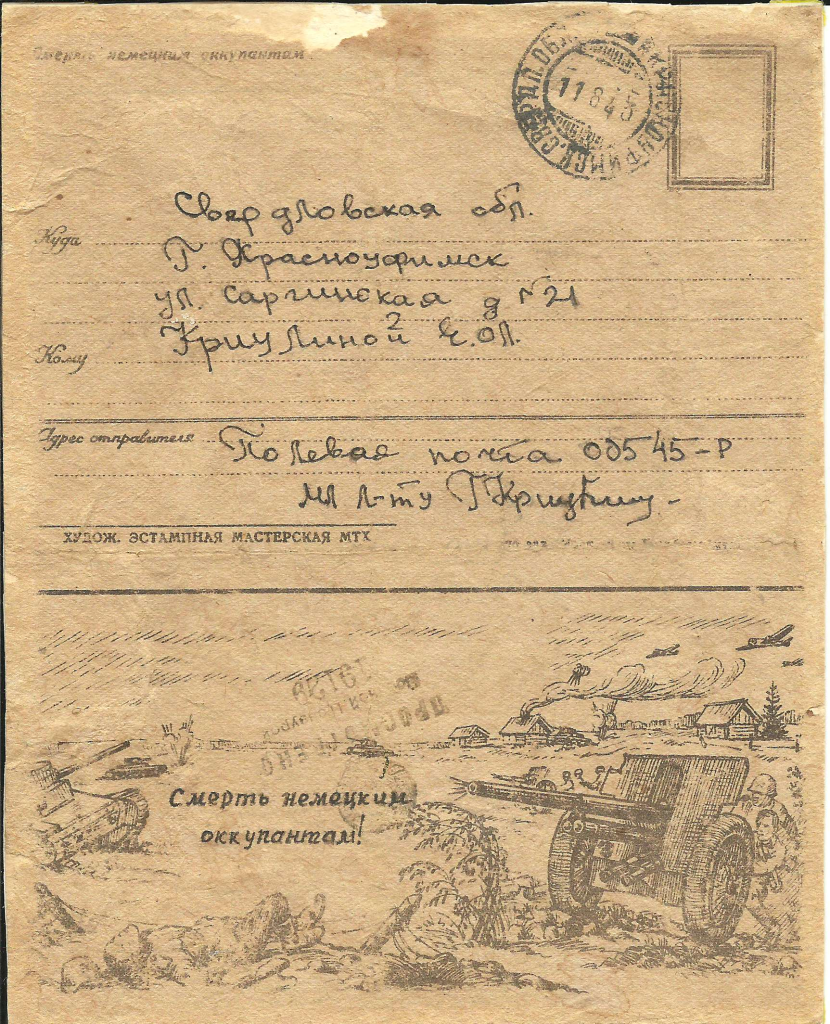 Смерть немецким оккупантам
КРАСНОУФИМСК СВЕРДЛ. ОБЛ.
11 8 45
Свердловская обл.
Куда
г. Красноуфимск
ул. Саргинская д № 21
Кому
Криулиной Е. Ол.
2
Адрес отправителя:
Полевая почта 00545-Р
мл л-ту Г
ХУДОЖ. ЭСТАМПНАЯ МАСТЕРСКАЯ МТХ
ПРОСМОТРЕНО
Смерть немецким
оккупантам!